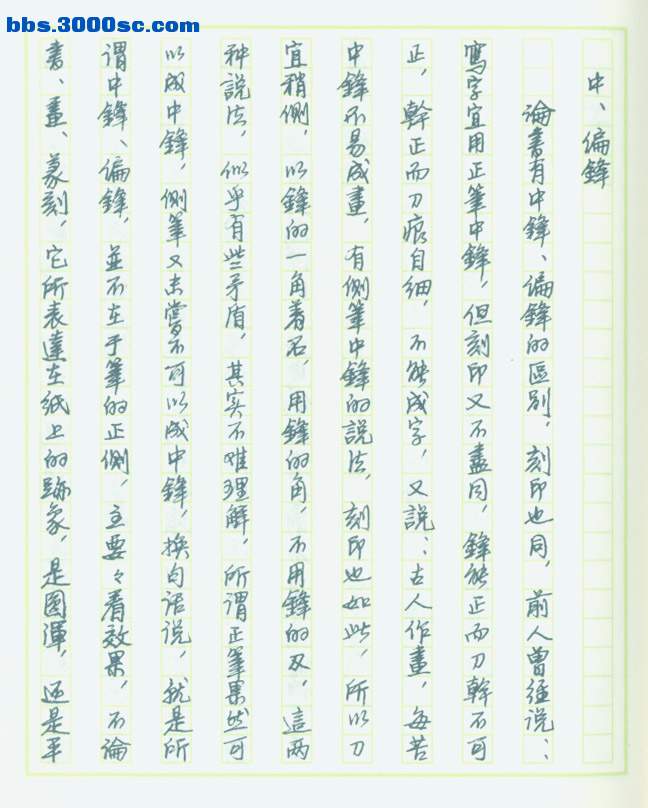 bbs.3000sc.com
中、偏鋒
論書有中鋒、偏鋒的區别，刻印也同，前人曾經说：
寫字宜用正筆中鋒，但刻印又不盡同，鋒能正而刀幹不可
正，幹正而刀痕自细，不能成字，又説：古人作畫，每苦
中鋒不易成畫，有側筆中鋒的説法，刻印也如此，所以刀
宜稍側，以鋒的一角着石，用鋒的角，不用鋒的刄，這两
种説法，似乎有些矛盾，其实不难理解，所谓正筆果然可
以成中鋒，側筆又未嘗不可以成中鋒，换句话说，就是所
谓中鋒、偏鋒，並不在于筆的正側，主要々看效果，不論
書、畫、篆刻，它所表達在纸上的跡象，是圆渾，还是平